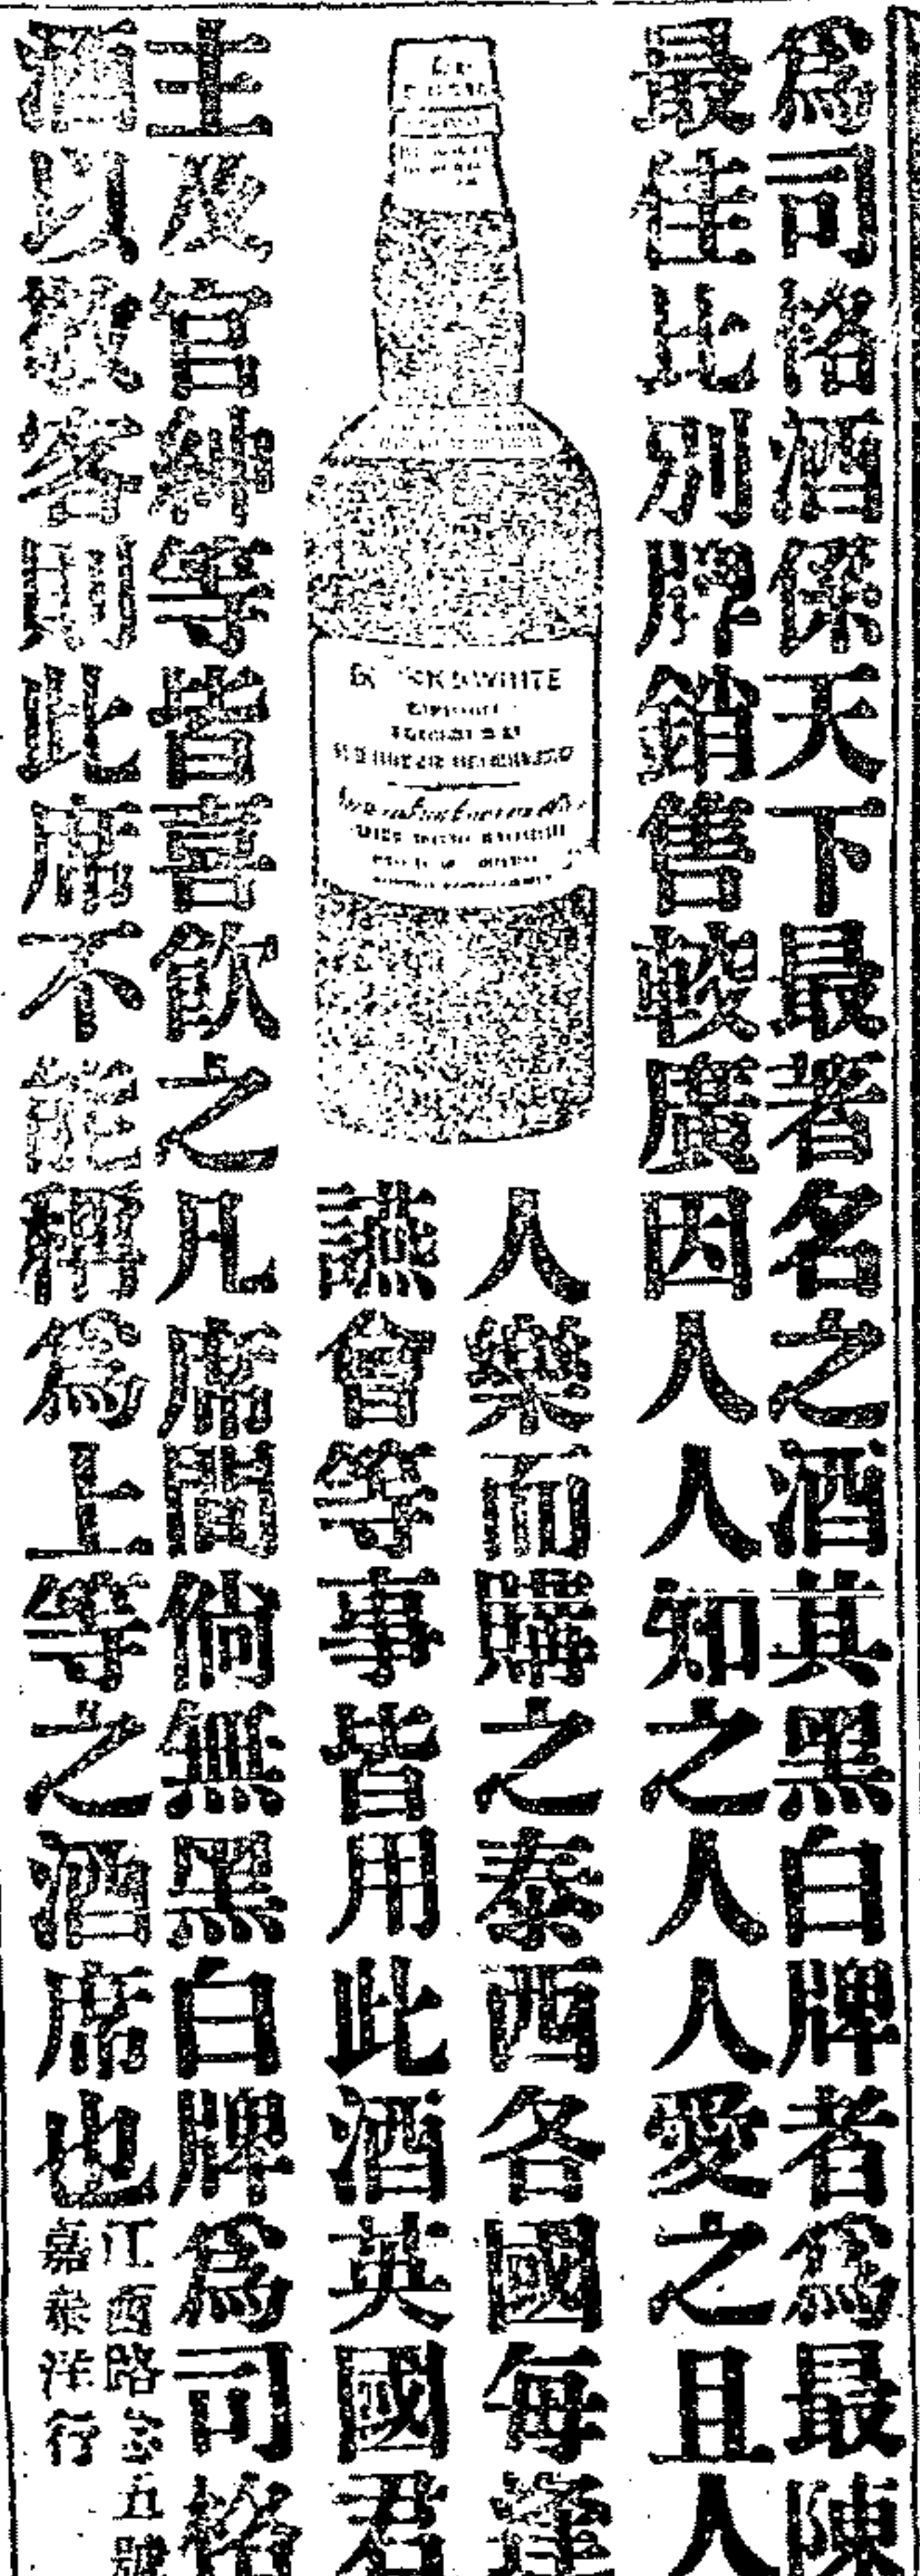 爲司格酒係天下最著名之酒其黑白牌者爲最陳
最佳比別牌銷售較廣因人人知之人人愛之且人
人樂而購之泰西各國每逢
讌會等事皆用此酒英國君
主及官紳等皆喜飲之凡席間倘無黑白牌爲司格
酒以敬客則此席不能稱爲上等之酒席也
江西路 五號
嘉 洋行
WHITE